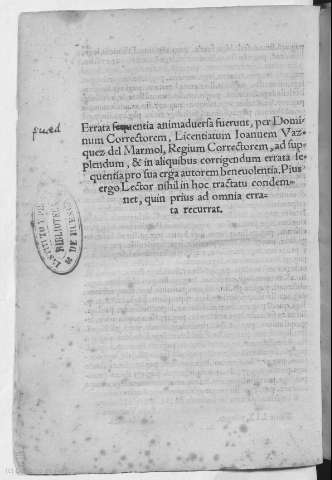 Errata sequentia animaduersa fuerunt, per Domi-
num Correctorem, Licentiatum Ioanuem Vaz-
quez del Marmol, Regium Correctorem, ad sup
plendum, & in aliquibus corrigendum errata se
quentia pro sua erga autorem beneuolentia. Pius
ergo Lector nihil in hoc tractatu condem-
net, quin prius ad omnia erra-
ta recurrat.
INSTITUTO
BIBLIOTECA
DE HUESCA